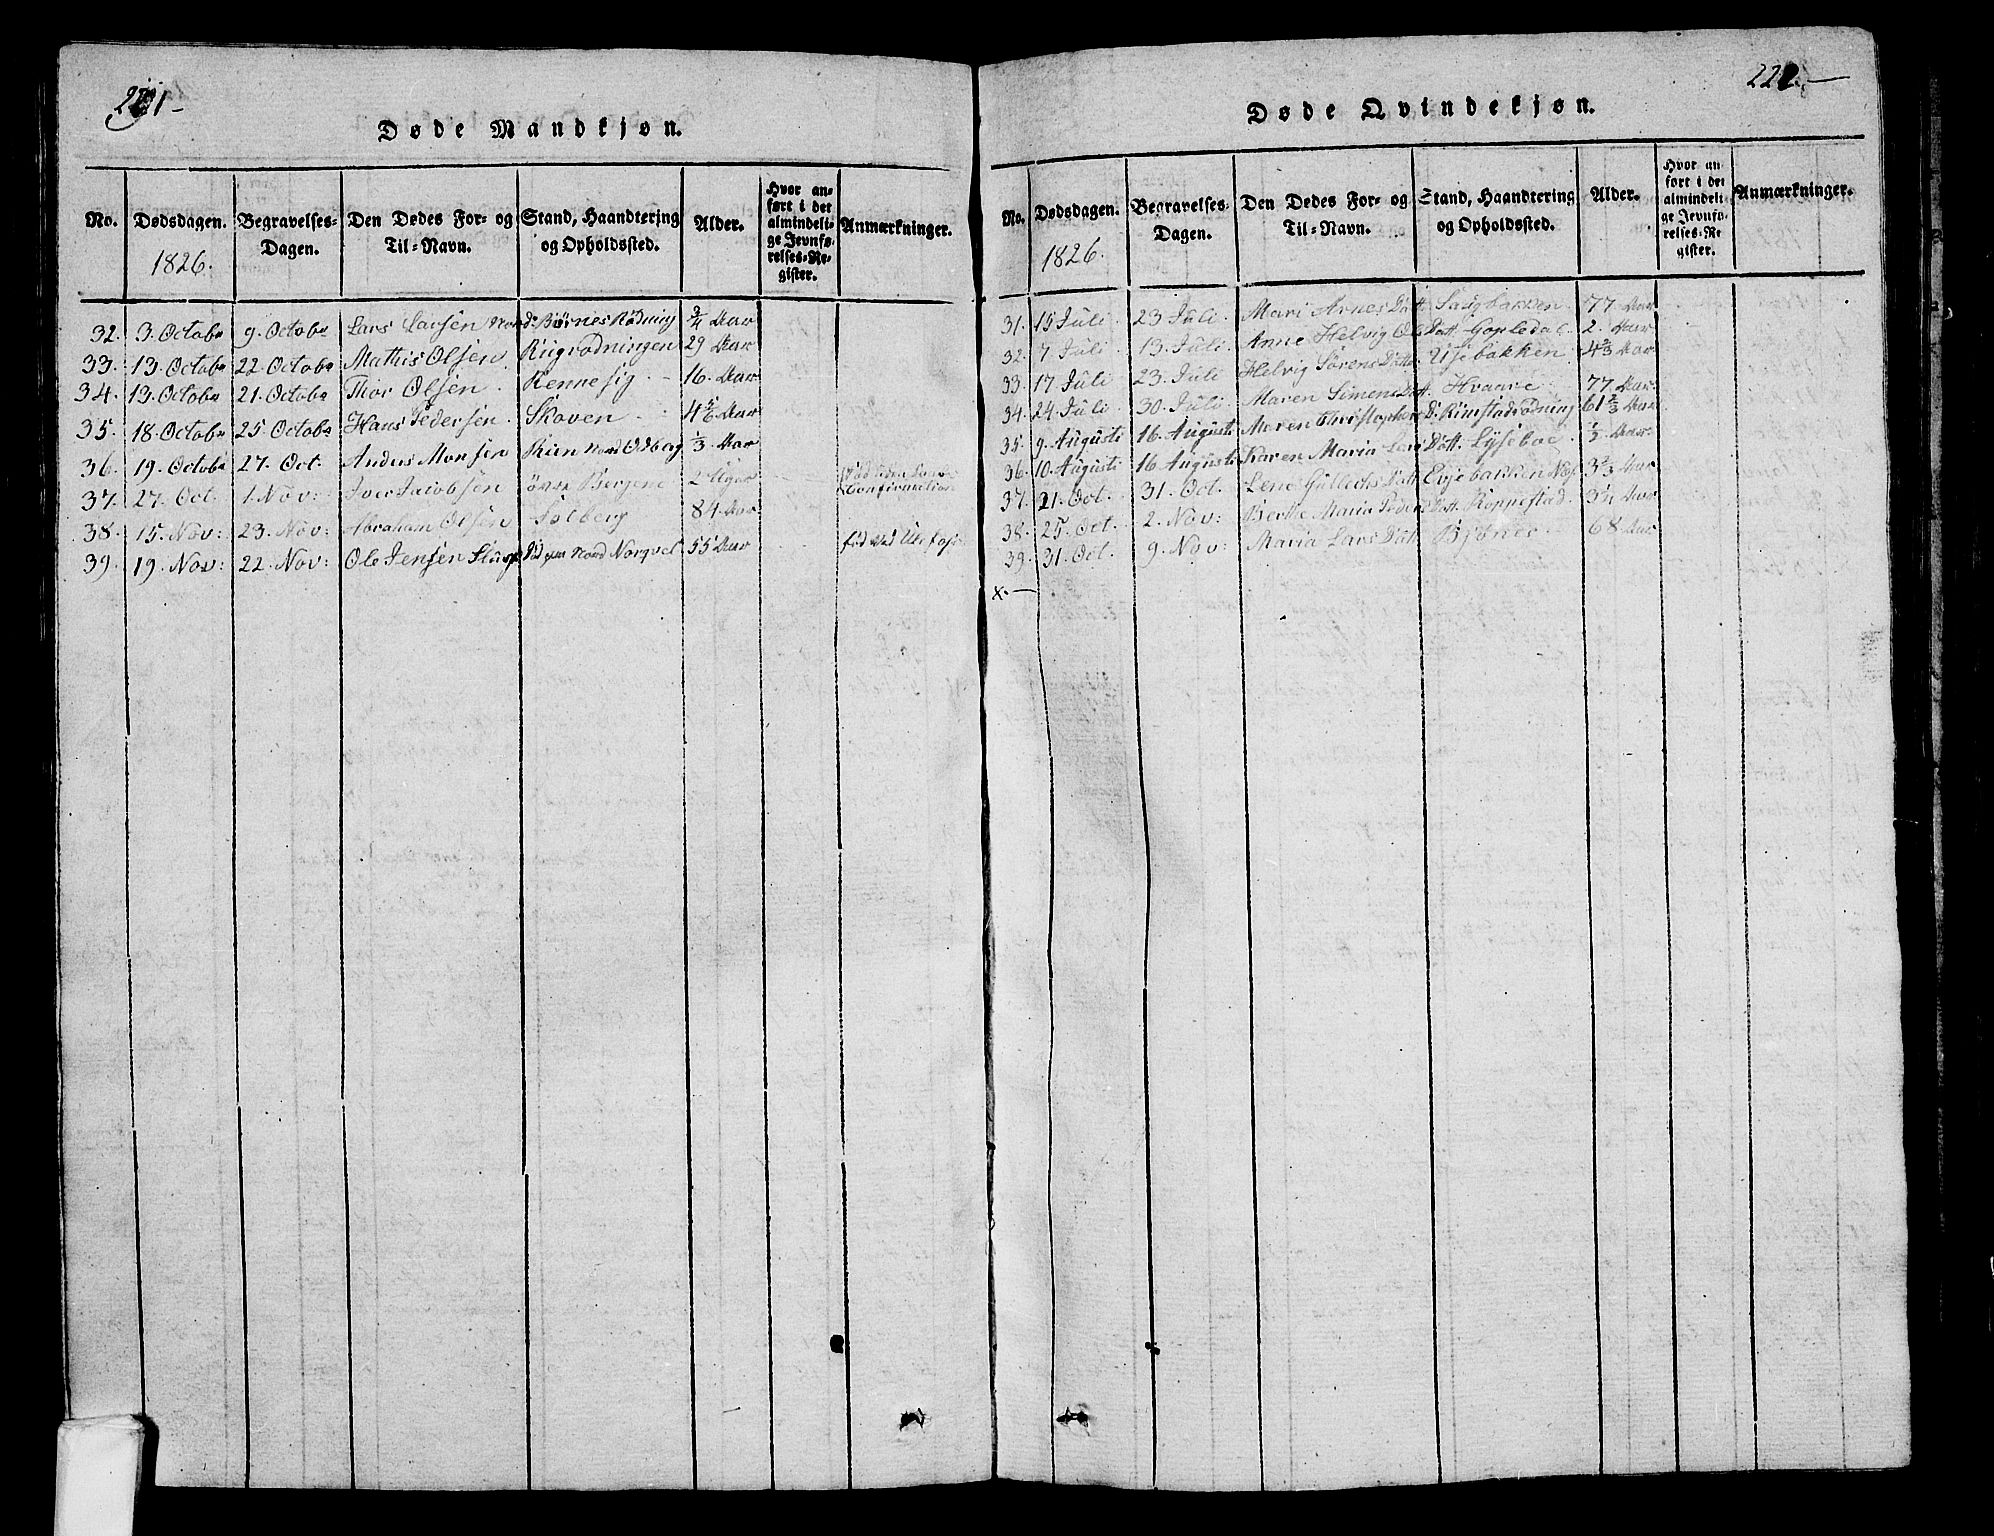 221-
Døde Mandkjøn.
No. Dødsdagen. Begravelses-Dagen. Den Dødes For- og Til-Navn. Stand, Haandtering og Opholdssted. Alder. Hvor anført i det almindelige Jevnførelses-Register. Anmærkninger.
1826.
32. 3. Octobr 9. Octobr Lars Larsen Nord: Biørnes Rødning 3/4 Aar
33. 13. Octobr 22 Octobr Mathis Olsen Rugrødningen 29 Aar
34. 13. Octobr 21. Octobr Thor Olsen Rennesig 16. Aar
35. 18. Octobr 25. Octobr Hans Pedersen Skoven 4 5/6 Aar
36. 19. Octobr 27. Oct. Anders Monsen Nord Odberg 1/3 Aar
37. 27. Oct. 1. Nov: Iver Jacobsen Bergene 2 Uger
38. 15. Nov: 23. Nov: Abraham Olsen Solberg 84. Aar
39. 19. Nov: 22. Nov: Ole Jensen Nord 55 Aar fød ved Ulefos
222.
Døde Qvindekjøn.
No. Dødsdagen. Begravelses-Dagen. Den Dødes For- og Til-Navn. Stand, Haandtering og Opholdssted. Alder. Hvor anført i det almindelige Jevnførelses-Register. Anmærkninger.
1826.
31. 15 Juli 23 Juli Mari Arnes Datt. Saugbakken 77 Aar
32. 7 Juli 13. Juli Anne Helvig Ols Datt. Gopledal 2. Aar
33. 17 Juli 23 Juli Helvig Sørens Datt. 4 2/3 Aar
34. 24 Juli 30 Juli Maren Simens Datt. Hvaare 77 Aar
35. 9. Augusti 16. Augusti Maren Christophers D. Rimstadrødning 61 2/3 Aar
36. 10. Augusti 16. Augusti Karen Maria Lars Datt. Lyseboe 1/2 Aar
37. 21. Oct. 31. Oct. Lene Gullechs Datt. Evjebakken 3 2/3 Aar
38. 25. Oct. 2. Nov: Berthe Maria Peders Datt. Roppestad 3 1/2 Aar
39. 31. Oct. 9. Nov: Maria Lars Datt. Bjønes 68 Aar
x.